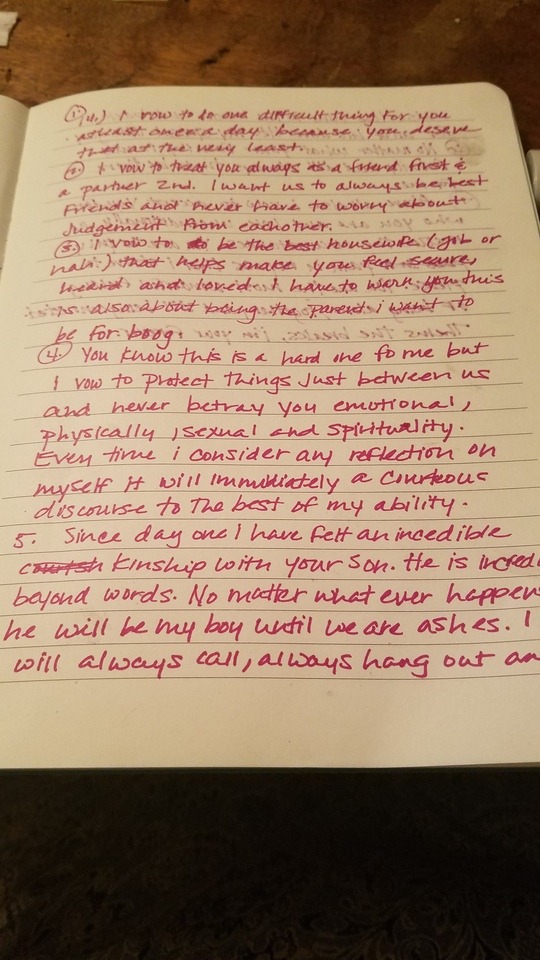 1. 4.) I vow to do one difficult thing for you
atleast once a day because you deserve
that at the very least.
2. I vow to treat you always as a friend first &
a partner 2nd. I want us to always be best
friends and never have to worry about
Judgement from eachother.
3. I vow to do be the best housewife (job or
nah.) that helps make you feel secure,
heard and loved. I have to work you this
is also about being the parent i want to
be for boog.
4. You know this is a hard one fo me but
I vow to protect things just between us
and never betray you emotional,
physically, sexual and spirituality.
Every time i consider any reflection on
myself it will immidiately a courteous
discourse to The best of my ability.
5. Since day one I have felt an incedible
Kinship with your Son. He is incred
beyond words. No matter what ever happen
he will be my boy until we are ashes. I
will always call, always hang out an